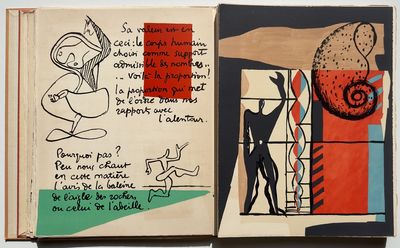 Sa valeur est en
ceci: le corps humain
choisi comme support
admissible des nombres...
... Voilà la proportion!
la proportion qui met
de l'ordre dans nos
rapports avec
l'alentour.
Pourquoi pas?
Peu nous chaut
en cette matière
l'avis de la baleine
de l'aigle des rochers
ou celui de l'abeille